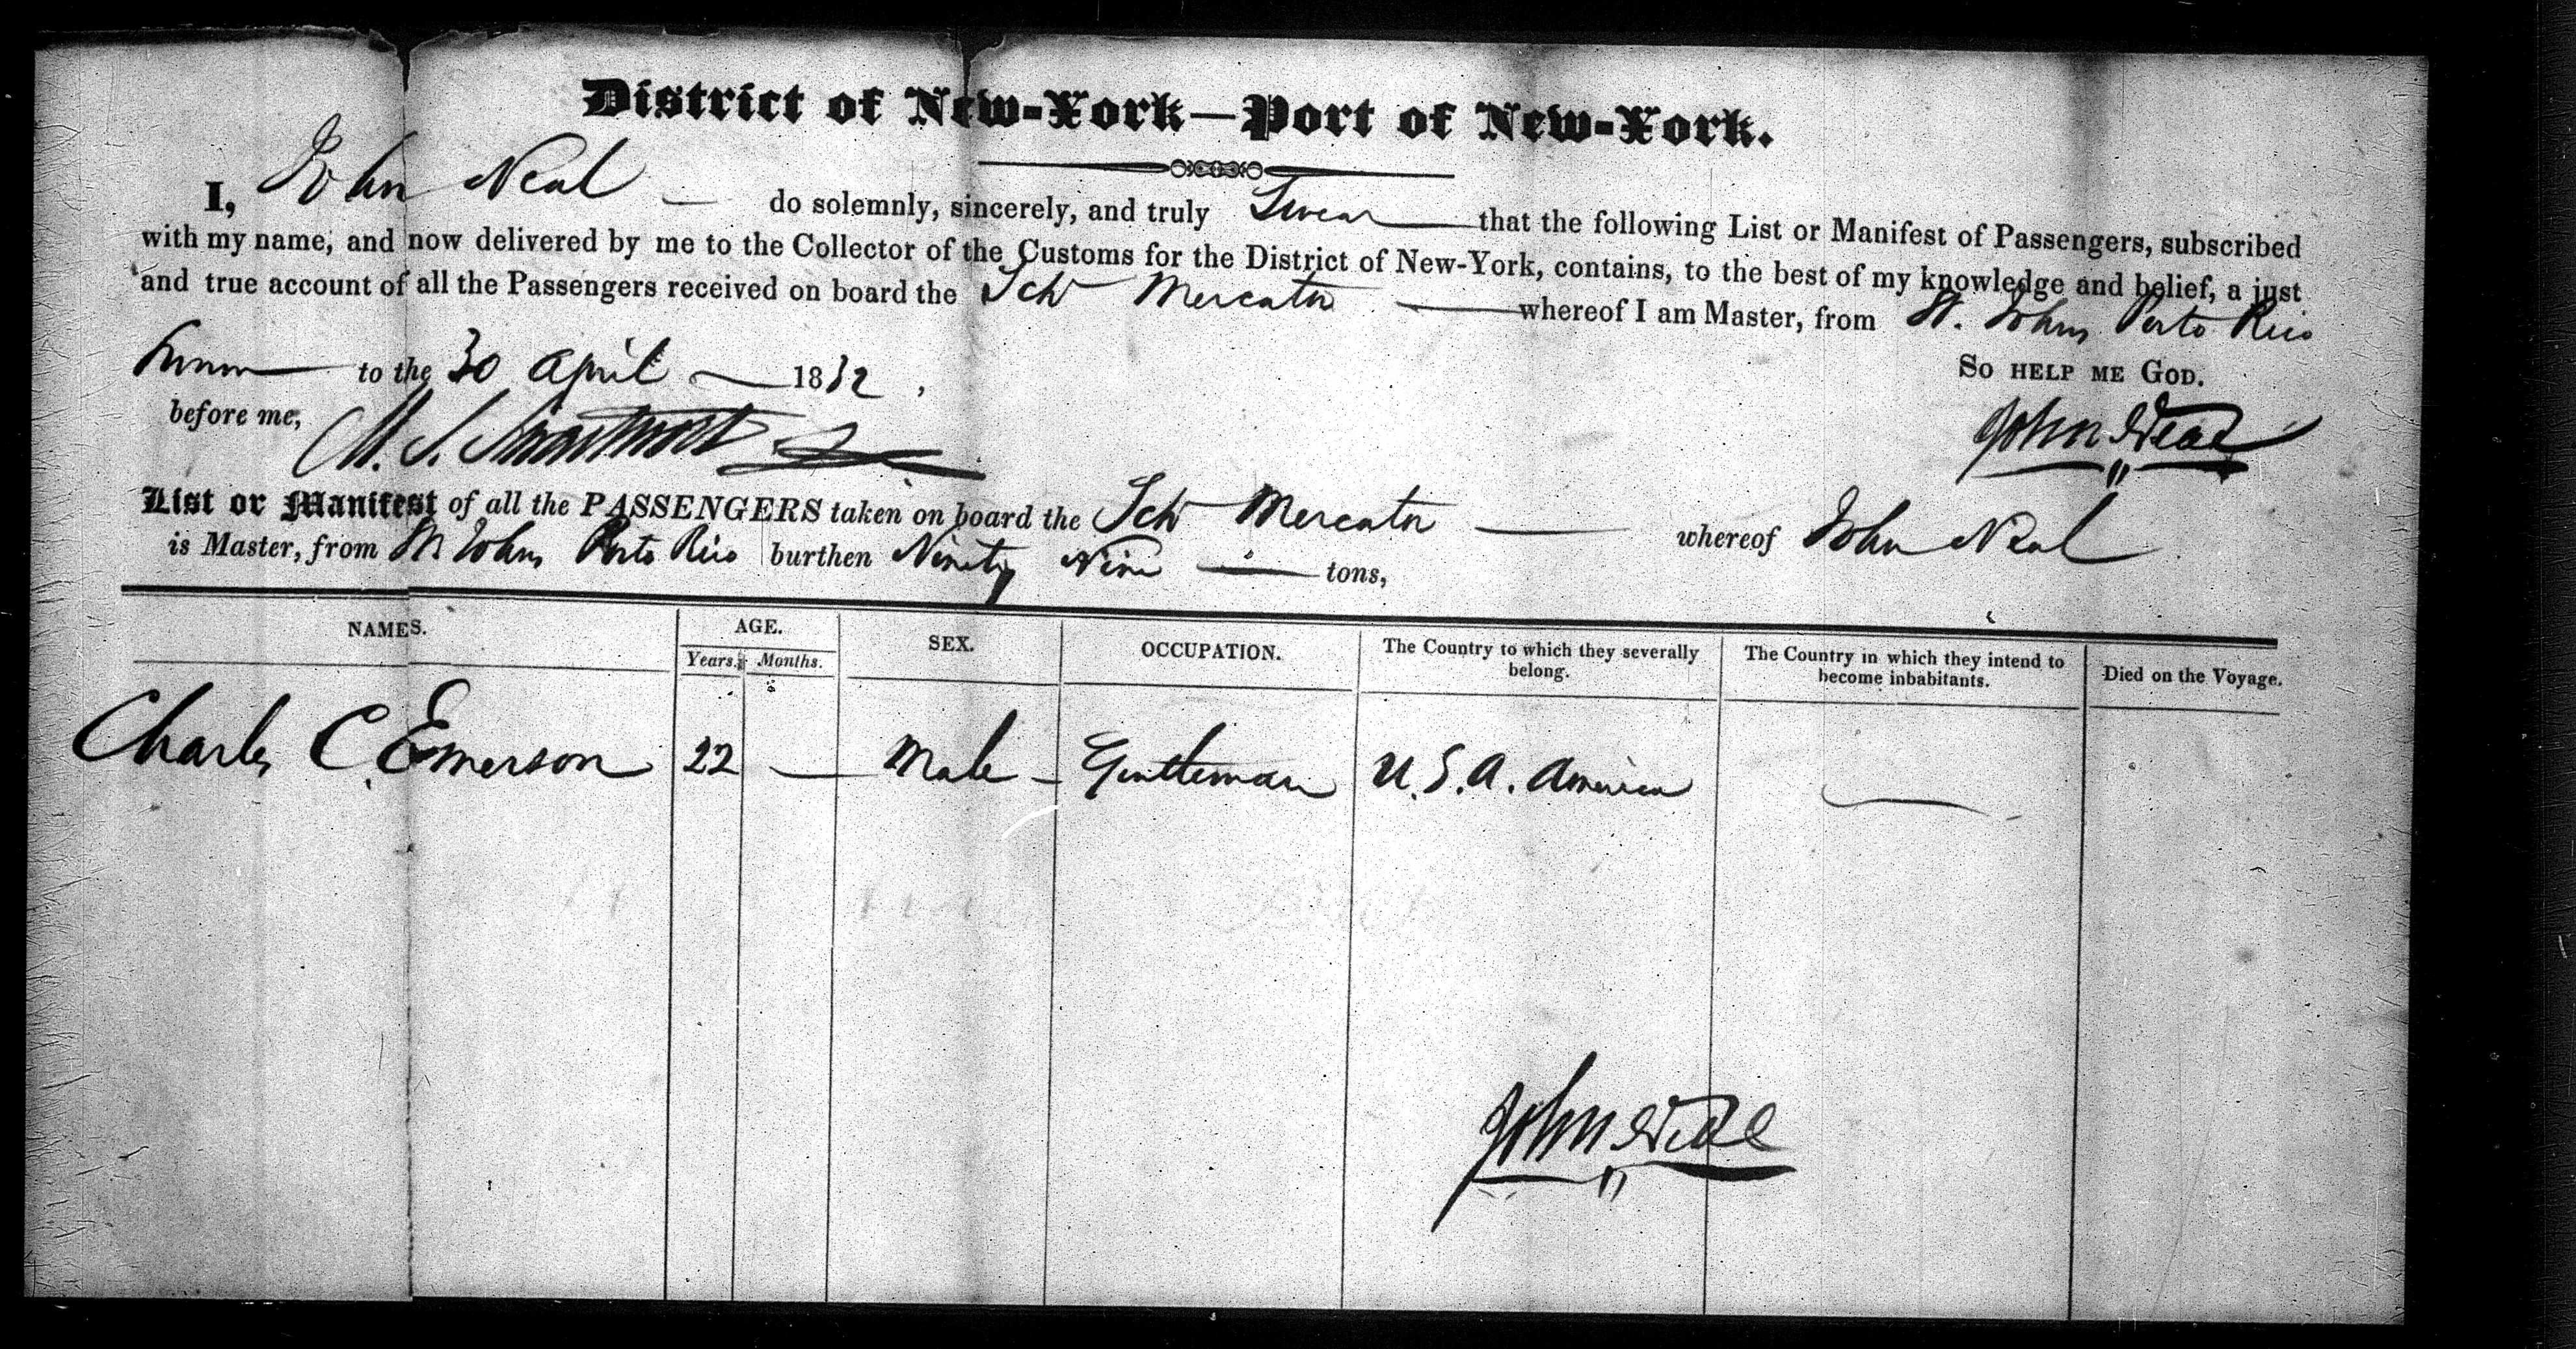 District of New-York—Port of New-York.
I, John Neal — do solemnly, sincerely, and truly Swear — that the following List or Manifest of Passengers, subscribed
with my name, and now delivered by me to the Collector of the Customs for the District of New-York, contains, to the best of my knowledge and belief, a just
and true account of all the Passengers received on board the Sch Mercator — whereof I am Master, from St. Johns Porto Rico
Sworn — to the 30 April — 1832,
So help me God.
before me, M. S. Swartwout
John Neal
List or Manifest of all the PASSENGERS taken on board the Sch Mercator — whereof John Neal
is Master, from St Johns Porto Rico burthen Ninety Nine — tons,
NAMES. AGE. SEX. OCCUPATION. The Country to which they severally belong. The Country in which they intend to become inhabitants. Died on the Voyage.
Years. Months.
Charles C. Emerson 22 — Male — Gentleman U.S.A. America —
John Neal